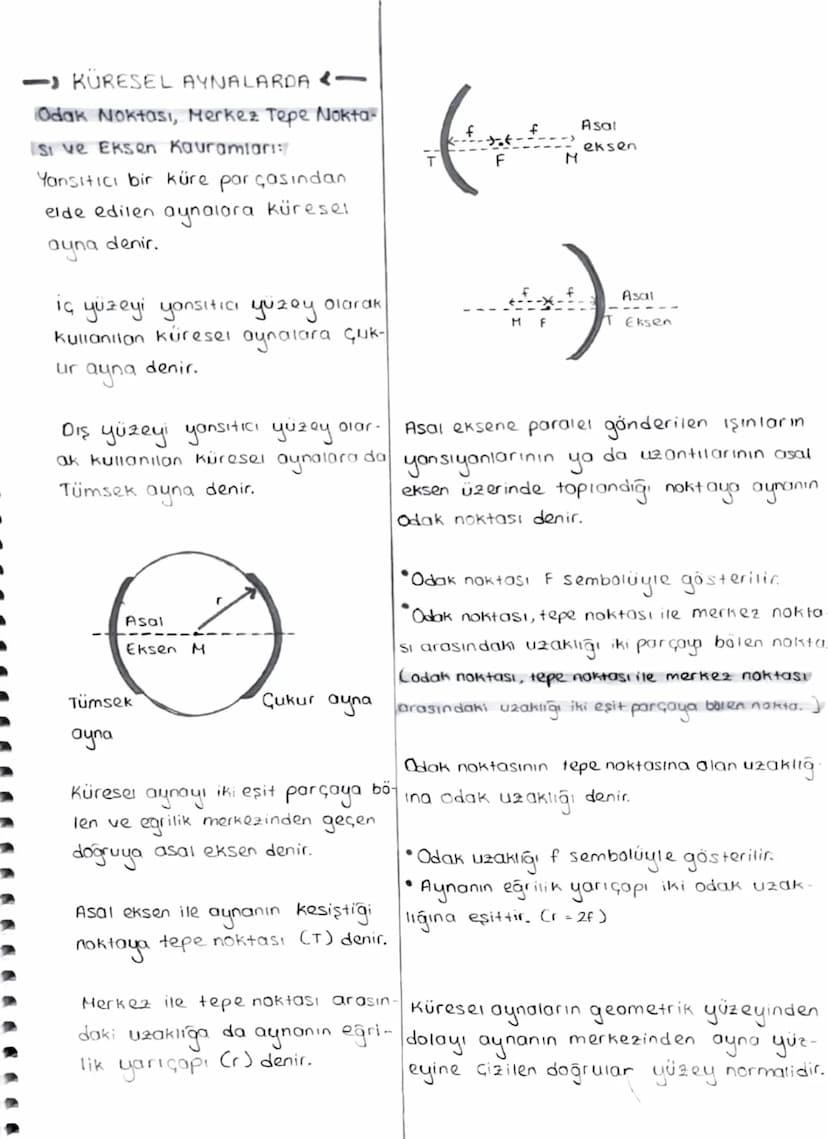 KÜRESEL AYNALARDA
Odak Noktası, Merkez Tepe Nokta-
sı ve Eksen Kavramları:
Yansıtıcı bir küre parçasından
elde edilen aynalara küresel
ayna denir.
İç yüzeyi yansıtıcı yüzey olarak
kullanılan küresel aynalara Çuk-
ur ayna denir.
Dış yüzeyi yansıtıcı yüzey olar-
ak kullanılan küresel aynalara da
Tümsek ayna denir.
r
Asal
Eksen M
Tümsek
ayna
Çukur ayna
Küresel aynayı iki eşit parçaya bö-
len ve eğrilik merkezinden geçen
doğruya asal eksen denir.
Asal eksen ile aynanın kesiştiği
noktaya tepe noktası (T) denir.
Merkez ile tepe noktası arasın-
daki uzaklığa da aynanın eğri-
lik yarıçapı (r) denir.
f f Asal
eksen
T F M
f f Asal
M F T Eksen
Asal eksene paralel gönderilen ışınların
yansıyanlarının ya da uzantılarının asal
eksen üzerinde toplandığı noktaya aynanın
Odak noktası denir.
• Odak noktası F sembolüyle gösterilir.
• Odak noktası, tepe noktası ile merkez nokta
sı arasındaki uzaklığı iki parçayı bölen nokta
(odak noktası, tepe noktası ile merkez noktası
arasındaki uzaklığı iki eşit parçaya bölen nokta. )
Odak noktasının tepe noktasına olan uzaklığ-
ına odak uzaklığı denir.
• Odak uzaklığı f sembolüyle gösterilir.
• Aynanın eğrilik yarıçapı iki odak uzak-
lığına eşittir. (r = 2f)
Küresel aynaların geometrik yüzeyinden
dolayı aynanın merkezinden ayna yüz-
eyine çizilen doğrular yüzey normalidir.